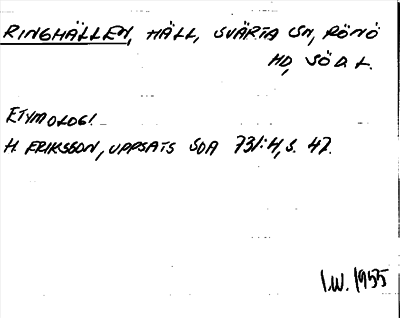 RINGHÄLLEN, HÄLL, SVÄRTA SN, RÖNÖ
HD, SÖDL.
ETYMOLOGI.
H. ERIKSSON, UPPSATS SOA 731:4, S. 47.
I.W. 1955